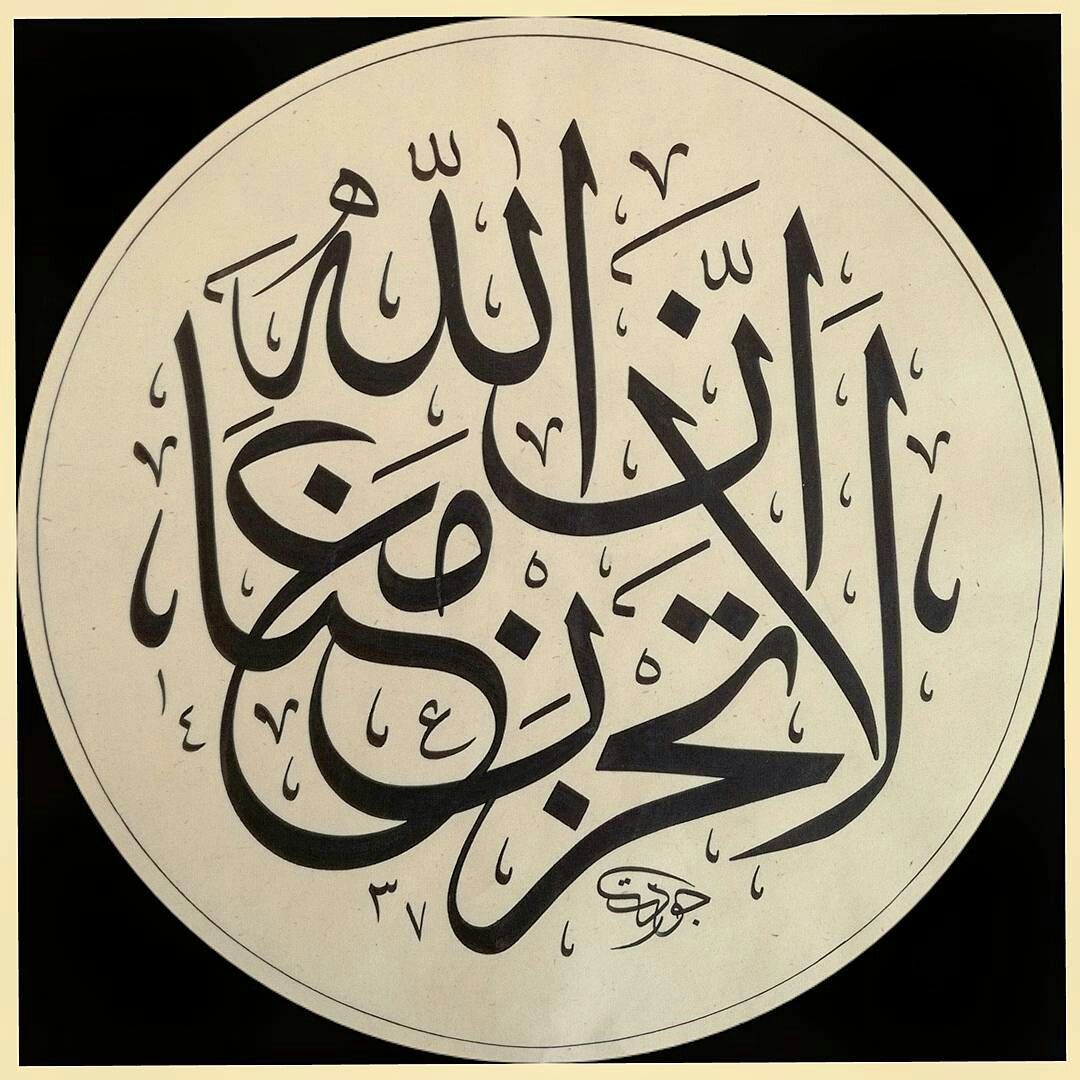 لَا تَحْزَنْ اِنَّ اللّٰهَ مَعَنَا
جودت
١٤٣٧